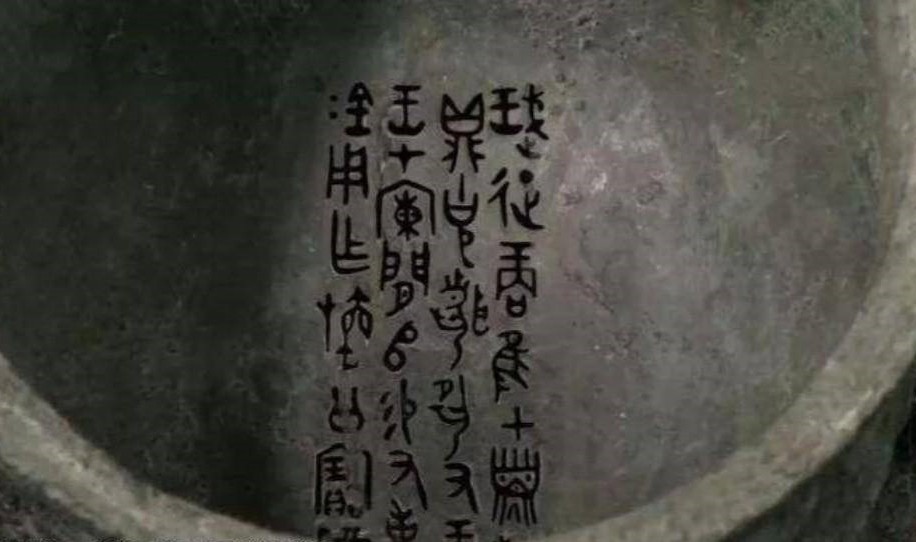 珷征商隹甲子
鼎克聞夙又
王才闌𠂤易又
金用乍旜公寶